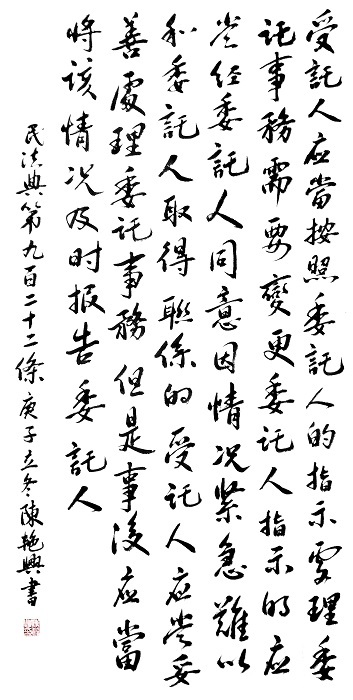 受託人应當按照委託人的指示處理委
託事務需要變更委託人指示的应
当经委託人同意因情况緊急難以
和委託人取得聯係的受託人应当妥
善處理委託事務但是事後应當
将該情况及时报告委託人
民法典第九百二十二條庚子立冬陳艳興書